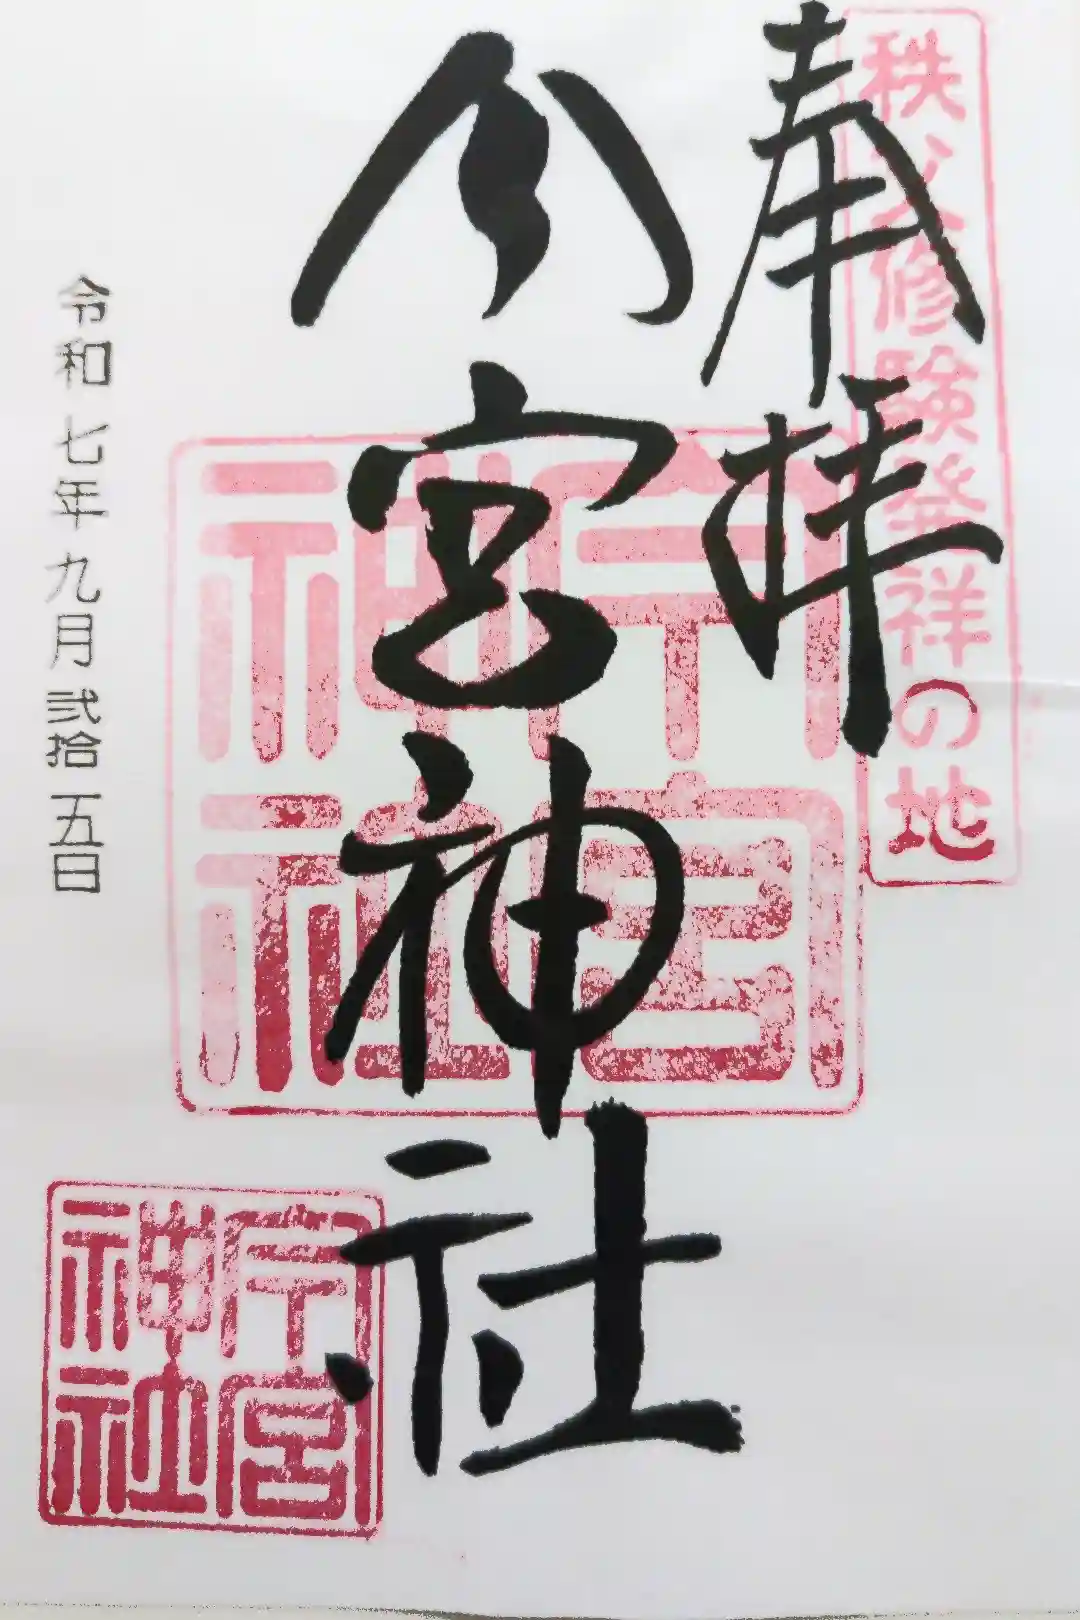 秩父修験発祥の地
奉拝
今宮神社
今宮
神社
令和七年九月弐拾五日
今宮
神社